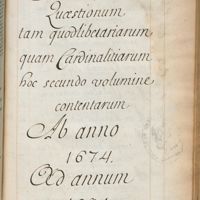 Quæstionum
tam quodlibetariarum
quam Cardinalitiarum
hoc secundo volumine
contentarum
Ab anno
1674.
Ad annum